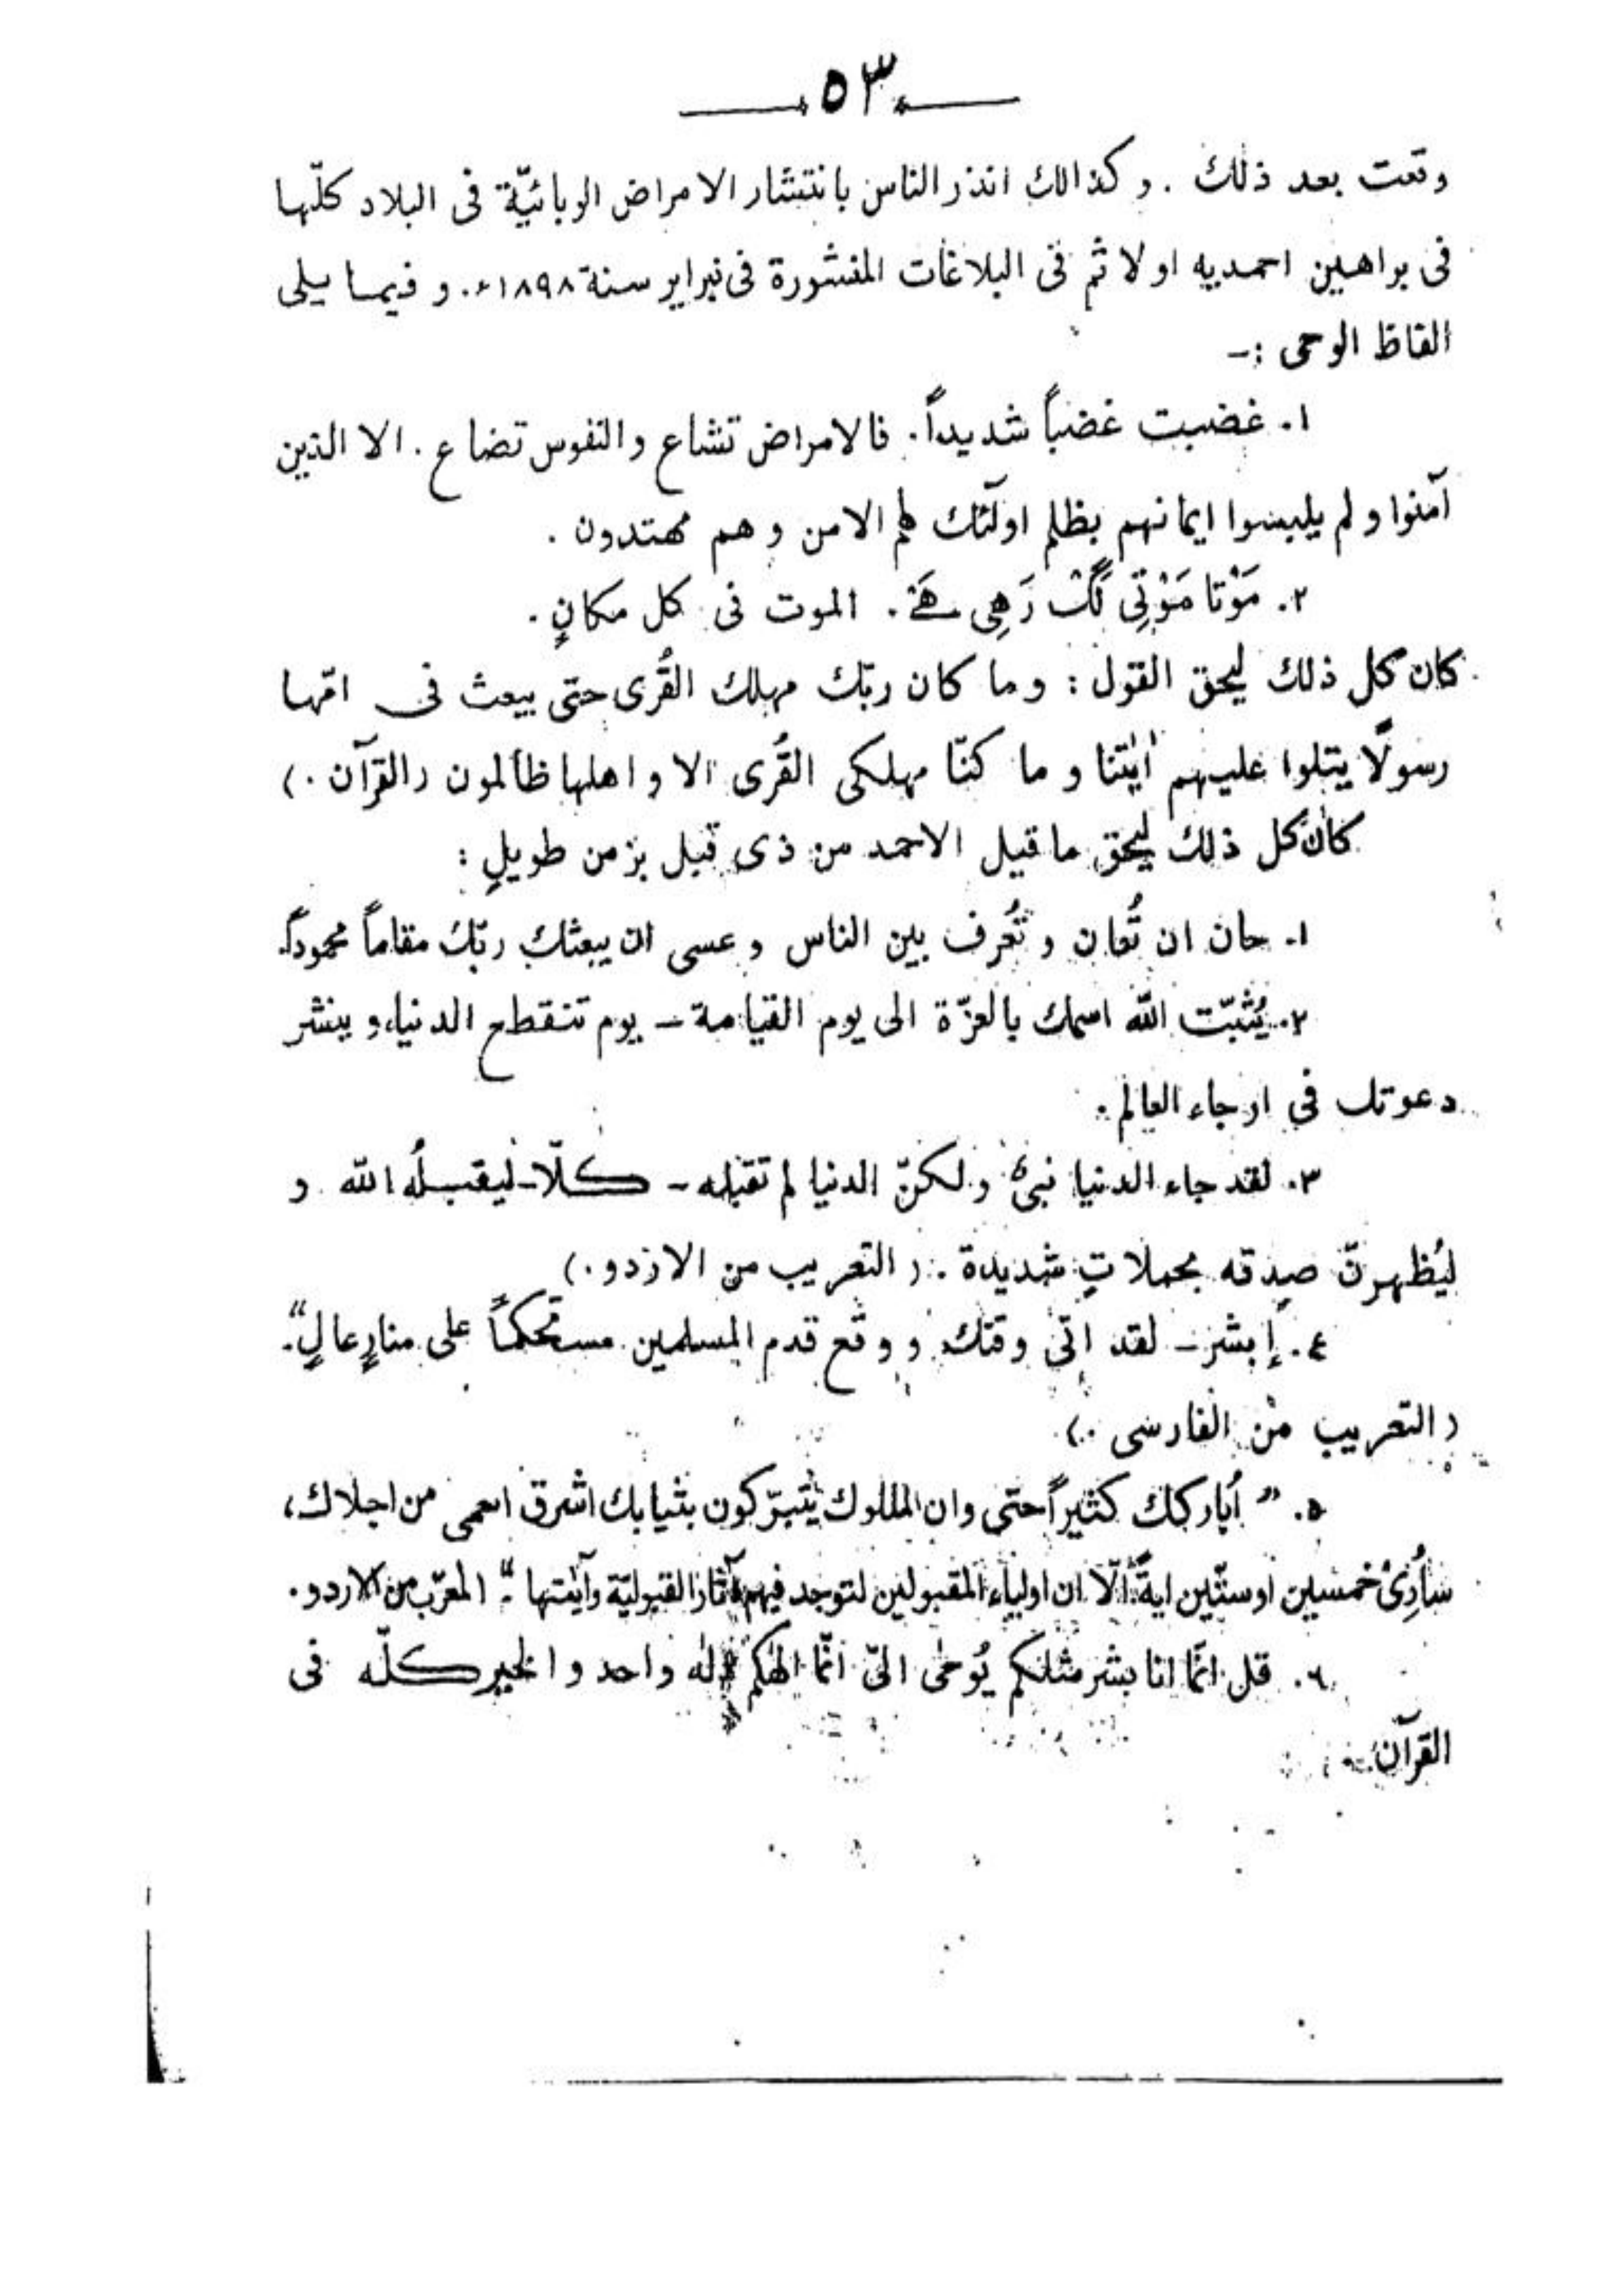 ٥٣
وقعت بعد ذلك . وكذالك انذر الناس بانتشار الامراض الوبائيّة فى البلاد كلّها
فى براهين احمديه اولا ثم فى البلاغات المنشورة فى فبراير سنة ١٨٩٨ء. وفيما يلى
الفاظ الوحى :-
١. غضبت غضباً شديداً. فالامراض تشاع والنفوس تضاع . الا الذين
آمنوا ولم يلبسوا ايمانهم بظلم اولٓئك لهم الامن وهم مهتدون .
٢. مَوْتا مَوْتِى لَگْ رَهِى هَے . الموت فى كل مكانٍ .
كان كل ذلك ليحق القول : وما كان ربّك مهلك القُرى حتى يبعث فى امّها
رسولًا يتلوا عليهم اٰيٰتنا وما كنّا مهلكى القُرى الا واهلها ظالمون (القرآن .)
كان كل ذلك ليحق ما قيل الاحمد من ذى قبل بزمن طويلٍ :
١. حان ان تُعان وتُعرف بين الناس وعسى ان يبعثك ربّك مقاماً محموداً.
٢. يُثبّت الله اسمك بالعزّة الى يوم القيامة - يوم تنقطع الدنياء وينشر
دعوتك فى ارجاء العالم .
٣. لقد جاء الدنيا نبىٌ ولكنّ الدنيا لم تقبله - كلّا - ليقبلُه الله و
ليُظهرنّ صدقه بحملاتٍ شديدة . (التعريب من الازدو .)
٤. إبشر - لقد اتى وقتك ووقع قدم المسلمين مستحكماً على منارٍ عالٍ".
(التعريب من الفارسى .)
٥. " أُباركك كثيراً حتى وان الملوك يتبرّكون بثيابك اشرق اسمى من اجلاك،
سأُرِىْ خمسين او ستّين ايةً الّا ان اولياء المقبولين لتوجد فيهم آثار القبوليّة وآيٰتها ." المعرّب من الاردو.
٦. قل انّما انا بشر مثلكم يُوحٰى الىّ انّما الٰهكم الٰه واحد والخير كلّه فى
القرآن .